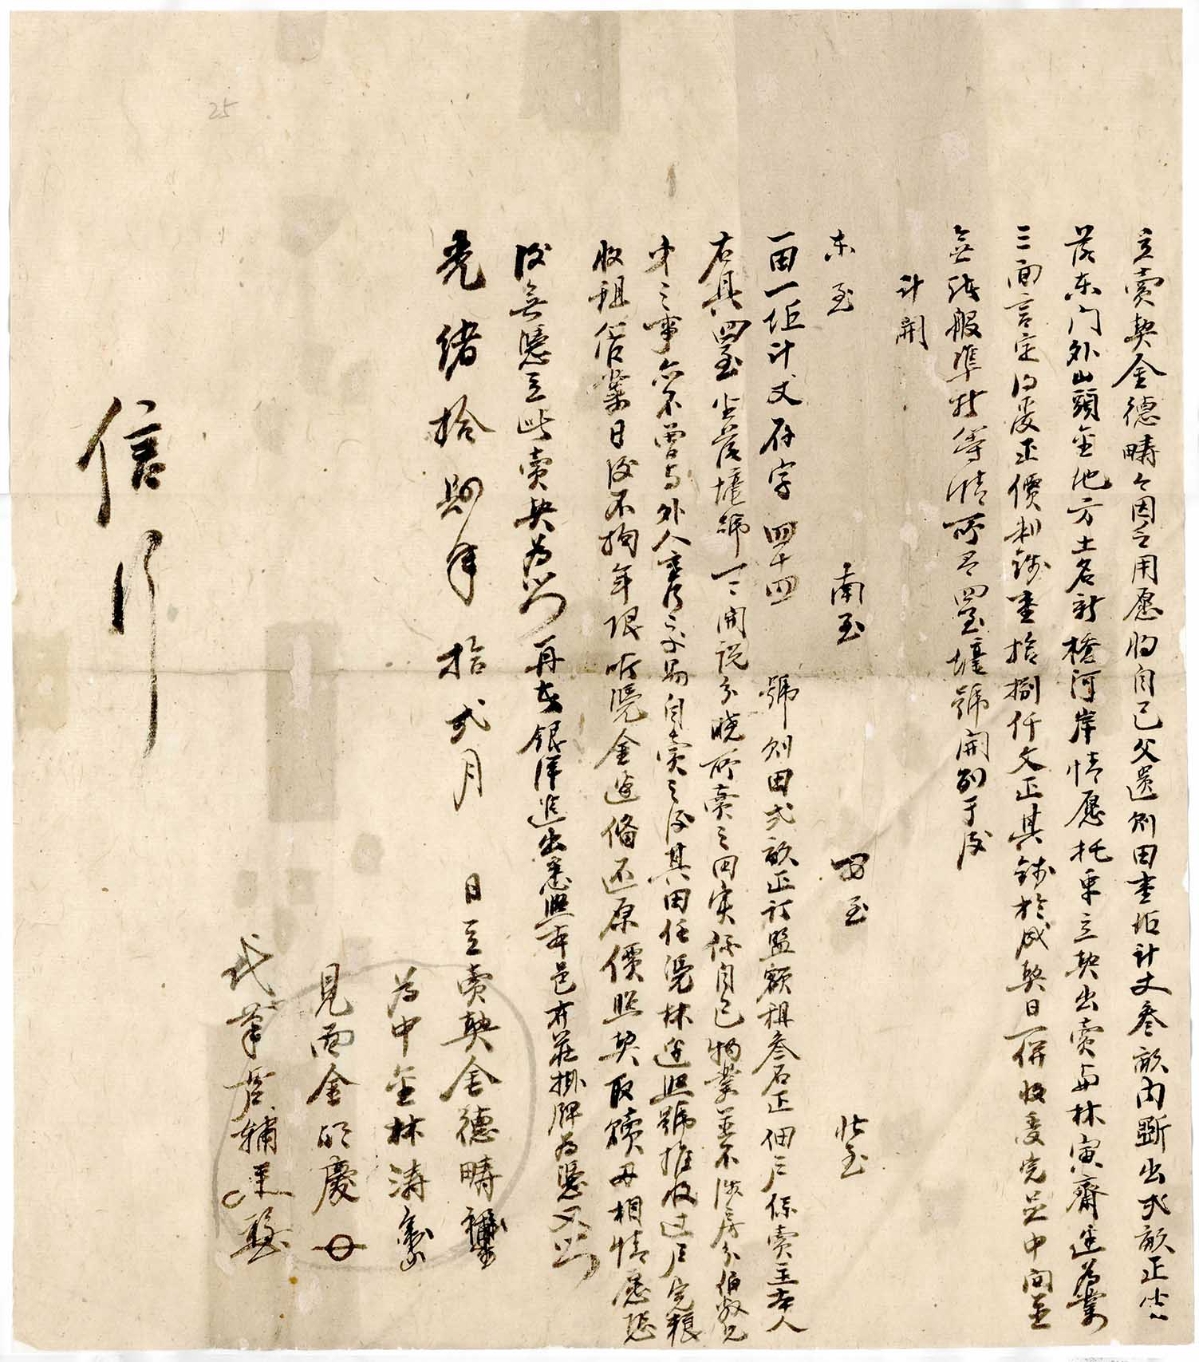 立賣契金德疇今因乏用愿將自己父遺則田壹坵計丈叁畝內斷出弍畝正坐
落東門外山頭金地方土名新橋河岸情愿托中立契出賣與林寅齋邊為業
三面言定得受正價制錢壹拾捌仟文正其錢於成契日一併收受完足中間並
無話般準折等情所有四至壚號開列于后
計開
東至 南至 西至 北至
一田一坵計丈存字四十四 號則田弍畝正訂監額租叁石正佃戶係賣主本人
右具四至坐落壚號一一開說分曉所賣之田實係自己物業並不涉房分伯叔兄
弟之事亦不曾與外人重行交易自賣之后其田任憑林邊照號推收過戶完糧
收租管業日後不拘年限聽憑金邊備还原價照契取贖毋相情愿恐
後無憑立此賣契為炤 再者銀洋進出悉照本邑 莊掛牌為憑又炤
光緒拾 年拾弍月 日立賣契金德疇
為中金林濤
見面金 慶
代筆 輔
信行
25